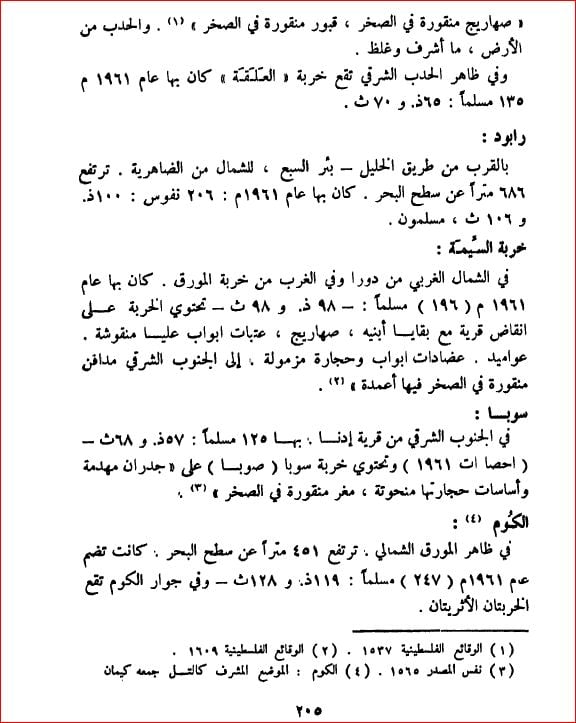 « صهاريج منقورة في الصخر ، قبور منقورة في الصخر » (١) . والحدب من
الأرض ، ما أشرف وغلظ .
وفي ظاهر الحدب الشرقي تقع خربة « العلقة » كان بها عام ١٩٦١ م
١٣٥ مسلماً : ٦٥ذ. و ٧٠ ث .
رابود :
بالقرب من طريق الخليل – بئر السبع ، للشمال من الضاهرية . ترتفع
٦٨٦ متراً عن سطح البحر . كان بها عام ١٩٦١م : ٢٠٦ نفوس : ١٠٠ذ.
و ١٠٦ ث ، مسلمون .
خربة السيمة :
في الشمال الغربي من دورا وفي الغرب من خربة المورق . كان بها عام
١٩٦١ م ( ١٩٦ ) مسلماً : – ٩٨ ذ. و ٩٨ ث – تحتوي الخربة على
انقاض قرية مع بقايا أبنيه ، صهاريج ، عتبات ابواب عليا منقوشة .
عواميد . عضادات ابواب وحجارة مزمولة . إلى الجنوب الشرقي مدافن
منقورة في الصخر فيها أعمدة » (٢) .
سوبا :
في الجنوب الشرقي من قرية إدنا . بها ١٢٥ مسلماً : ٥٧ذ. و ٦٨ث –
( احصاات ١٩٦١ ) وتحتوي خربة سوبا ( صوبا ) على « جدران مهدمة
وأساسات حجارتها منحوتة ، مغر منقورة في الصخر » (٣) .
الكوم (٤) :
في ظاهر المورق الشمالي . ترتفع ٤٥١ متراً عن سطح البحر . كانت تضم
عام ١٩٦١م ( ٢٤٧ ) مسلماً : ١١٩ذ. و ١٢٨ث – وفي جوار الكوم تقع
الخربتان الأثريتان .
(١) الوقائع الفلسطينية ١٥٣٧ . (٢) الوقائع الفلسطينية ١٦٠٩ .
(٣) نفس المصدر ١٥٦٥ . (٤) الكوم : الموضع المشرف كالتل جمعه كيمان
٢٠٥